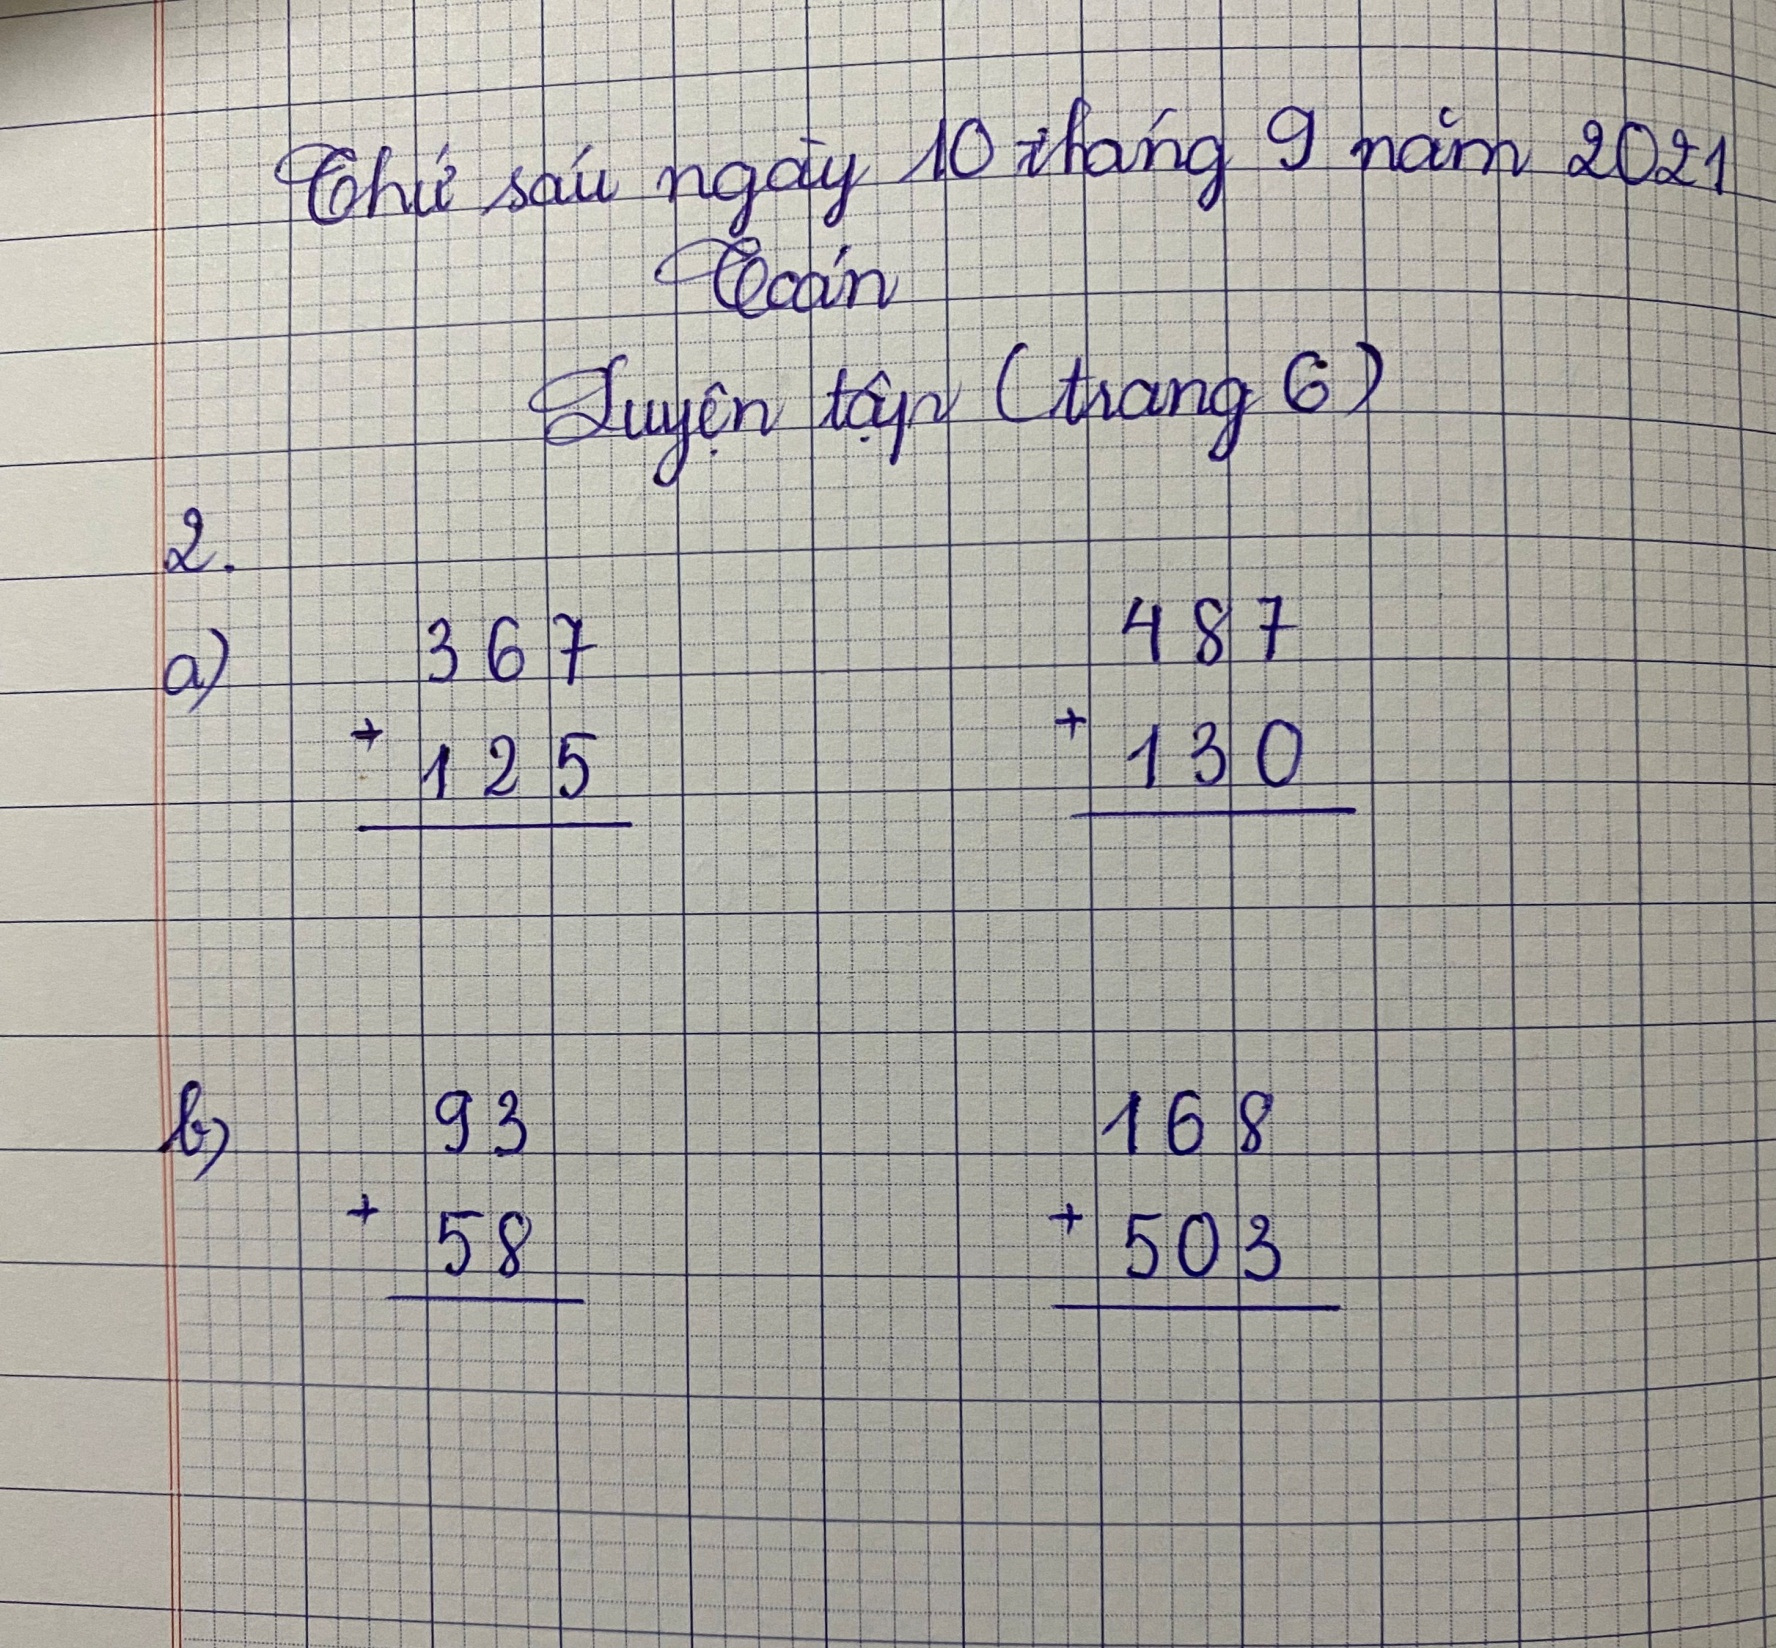 Thứ sáu ngày 10 tháng 9 năm 2021
Toán
Luyện tập (trang 6)
2.
a) 367 487
+ +
125 130
b) 93 168
+ +
58 503